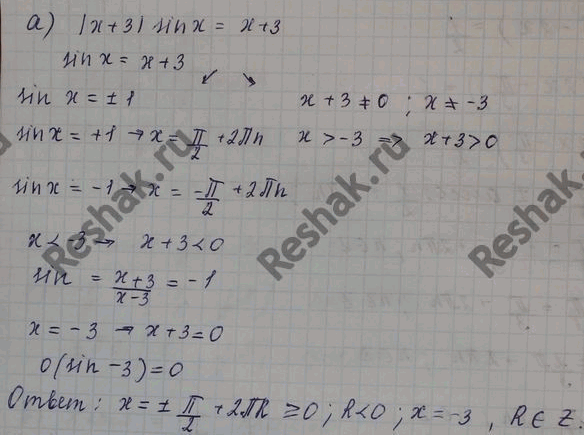 а) |x+3| sin x = x+3
sin x = x+3
↙ ↘
sin x = ±1 x+3 ≠ 0 ; x ≠ -3
sin x = +1 → x = π/2 + 2πn x > -3 => x+3 > 0
sin x = -1 → x = -π/2 + 2πn
x < -3 → x+3 < 0
sin = x+3/x-3 = -1
x = -3 → x+3 = 0
0(sin -3) = 0
Ответ: x = ± π/2 + 2πR ≥ 0 ; R < 0 ; x = -3 , R ∈ Z.
Reshak.ru
Reshak.ru
Reshak.ru